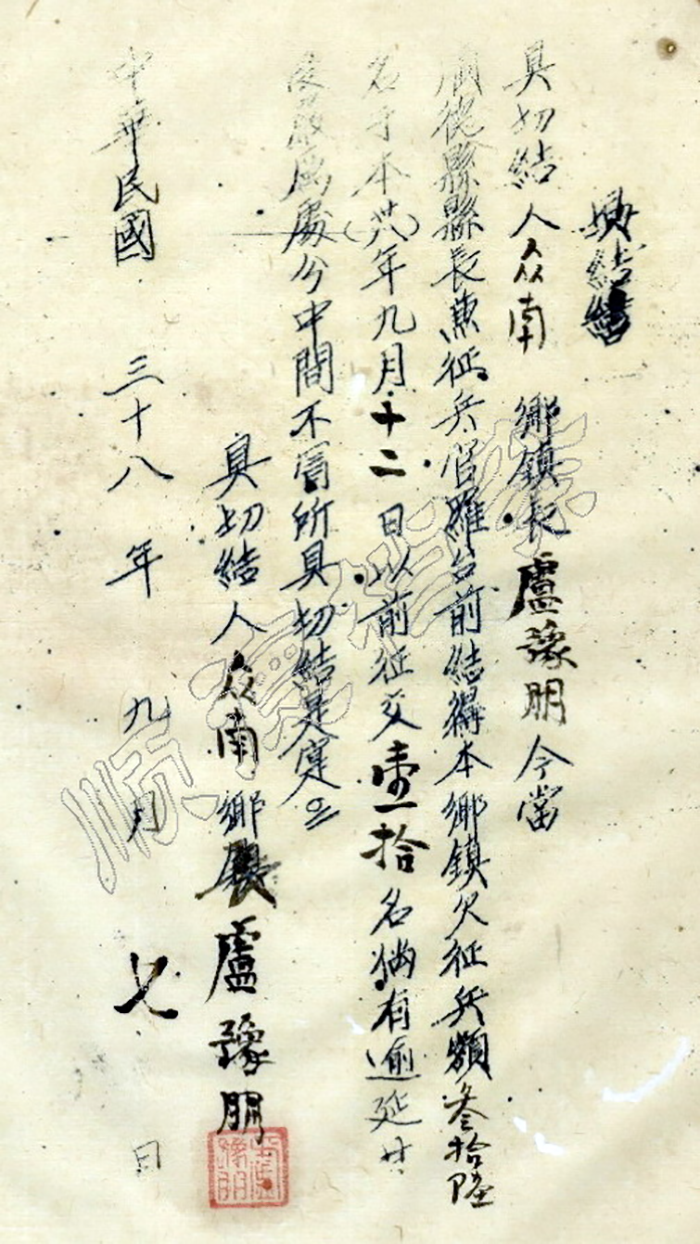 切結書
具切結人众南鄉鎮長盧豫朋今當
順德縣縣長兼征兵官羅台前結得本鄉鎮欠征兵額叁拾陸
名于本(卅八)年九月十二日以前征交壹拾名倘有逾延甘
受嚴厲處分中間不冒所具切結是寔
具切結人众南鄉長盧豫朋
中華民國三十八年九月七日